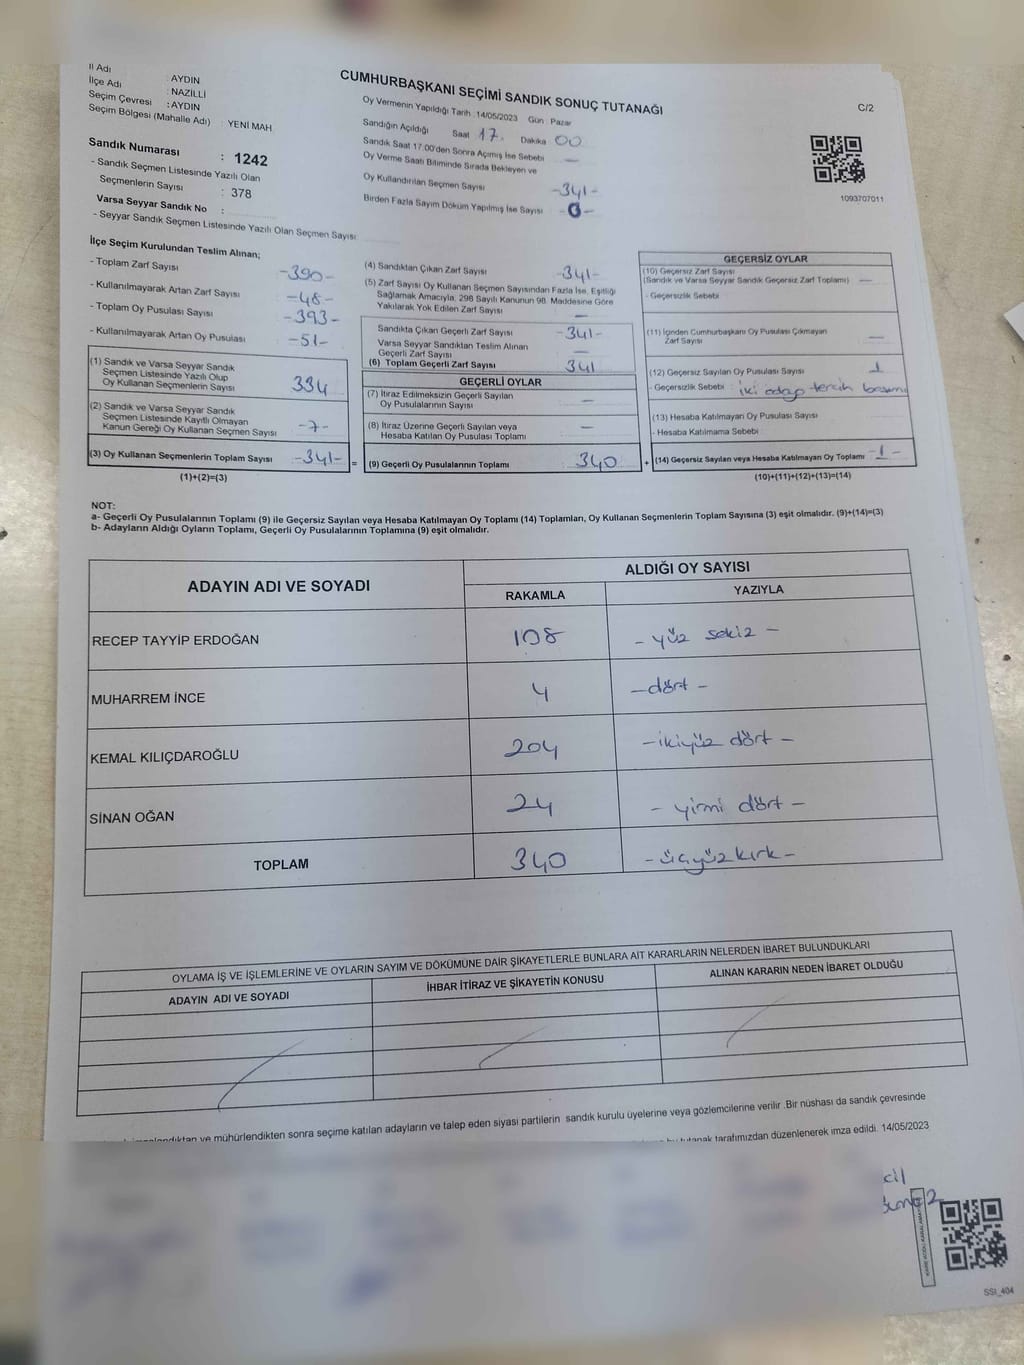 İl Adı
İlçe Adı : AYDIN
Seçim Çevresi : NAZİLLİ
Seçim Bölgesi (Mahalle Adı) : AYDIN
: YENİ MAH
CUMHURBAŞKANI SEÇİMİ SANDIK SONUÇ TUTANAĞI
C/2
Oy Vermenin Yapıldığı Tarih : 14/05/2023 Gün : Pazar
Sandığın Açıldığı Saat 17. Dakika 00
Sandık Saat 17.00'den Sonra Açımış İse Sebebi —
Oy Verme Saati Bitiminde Sırada Bekleyen ve
Oy Kullandırılan Seçmen Sayısı -341-
Birden Fazla Sayım Döküm Yapılmış İse Sayısı -0-
1093707011
Sandık Numarası : 1242
- Sandık Seçmen Listesinde Yazılı Olan
Seçmenlerin Sayısı : 378
Varsa Seyyar Sandık No :
- Seyyar Sandık Seçmen Listesinde Yazılı Olan Seçmen Sayısı
İlçe Seçim Kurulundan Teslim Alınan;
- Toplam Zarf Sayısı -390-
- Kullanılmayarak Artan Zarf Sayısı -48-
- Toplam Oy Pusulası Sayısı -393-
- Kullanılmayarak Artan Oy Pusulası -51-
(1) Sandık ve Varsa Seyyar Sandık
Seçmen Listesinde Yazılı Olup
Oy Kullanan Seçmenlerin Sayısı 334
(2) Sandık ve Varsa Seyyar Sandık
Seçmen Listesinde Kayıtlı Olmayan
Kanun Gereği Oy Kullanan Seçmen Sayısı -7-
(3) Oy Kullanan Seçmenlerin Toplam Sayısı -341- =
(1)+(2)=(3)
(4) Sandıktan Çıkan Zarf Sayısı -341-
(5) Zarf Sayısı Oy Kullanan Seçmen Sayısından Fazla İse, Eşitliği
Sağlamak Amacıyla, 298 Sayılı Kanunun 98. Maddesine Göre
Yakılarak Yok Edilen Zarf Sayısı —
Sandıkta Çıkan Geçerli Zarf Sayısı -341-
Varsa Seyyar Sandıktan Teslim Alınan
Geçerli Zarf Sayısı —
(6) Toplam Geçerli Zarf Sayısı 341
GEÇERLİ OYLAR
(7) İtiraz Edilmeksizin Geçerli Sayılan
Oy Pusulalarının Sayısı —
(8) İtiraz Üzerine Geçerli Sayılan veya
Hesaba Katılan Oy Pusulası Toplamı —
(9) Geçerli Oy Pusulalarının Toplamı 340 +
GEÇERSİZ OYLAR
(10) Geçersiz Zarf Sayısı
(Sandık ve Varsa Seyyar Sandık Geçersiz Zarf Toplamı) —
- Geçersizlik Sebebi
(11) İçinden Cumhurbaşkanı Oy Pusulası Çıkmayan
Zarf Sayısı —
(12) Geçersiz Sayılan Oy Pusulası Sayısı 1
- Geçersizlik Sebebi : iki adap tercih
(13) Hesaba Katılmayan Oy Pusulası Sayısı
- Hesaba Katılmama Sebebi
(14) Geçersiz Sayılan veya Hesaba Katılmayan Oy Toplamı -1-
(10)+(11)+(12)+(13)=(14)
NOT:
a- Geçerli Oy Pusulalarının Toplamı (9) ile Geçersiz Sayılan veya Hesaba Katılmayan Oy Toplamı (14) Toplamları, Oy Kullanan Seçmenlerin Toplam Sayısına (3) eşit olmalıdır. (9)+(14)=(3)
b- Adayların Aldığı Oyların Toplamı, Geçerli Oy Pusulalarının Toplamına (9) eşit olmalıdır.
ADAYIN ADI VE SOYADI
ALDIĞI OY SAYISI
RAKAMLA YAZIYLA
RECEP TAYYİP ERDOĞAN 108 - yüz sekiz -
MUHARREM İNCE 4 -dört -
KEMAL KILIÇDAROĞLU 204 -ikiyüz dört -
SİNAN OĞAN 24 - yirmi dört -
TOPLAM 340 -üçyüzkırk-
OYLAMA İŞ VE İŞLEMLERİNE VE OYLARIN SAYIM VE DÖKÜMÜNE DAİR ŞİKAYETLERLE BUNLARA AİT KARARLARIN NELERDEN İBARET BULUNDUKLARI
ADAYIN ADI VE SOYADI
İHBAR İTİRAZ VE ŞİKAYETİN KONUSU
ALINAN KARARIN NEDEN İBARET OLDUĞU
ve mühürlendikten sonra seçime katılan adayların ve talep eden siyasi partilerin sandık kurulu üyelerine veya gözlemcilerine verilir .Bir nüshası da sandık çevresinde
bu tutanak tarafımızdan düzenlenerek imza edildi. 14/05/2023
SSI_404